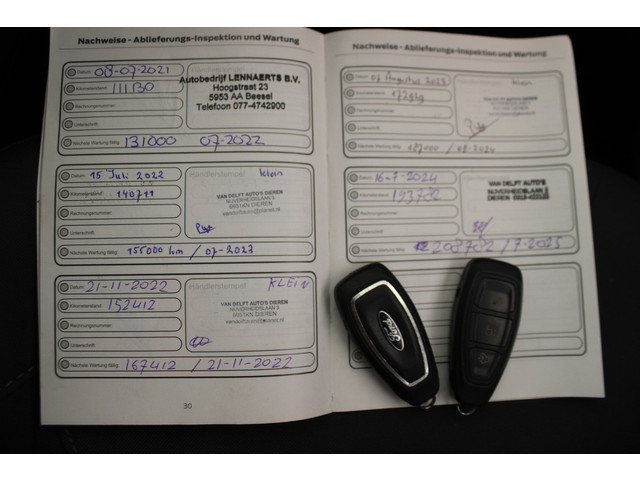 Nachweise - Ablieferungs-Inspektion und Wartung
Datum: 08-07-2021
Kilometerstand: 111130
Rechnungsnummer:
Unterschrift:
Nächste Wartung fällig: 131000 07-2022
Autobedrijf LENNAERTS B.V.
Hoogstraat 23
5953 AA Beesel
Telefoon 077-4742900
Datum: 15 Juli 2022
Kilometerstand: 140711
Rechnungsnummer:
Unterschrift:
Nächste Wartung fällig: 155000 km / 07-2023
Händlerstempel klein
VAN DELFT AUTO'S DIEREN
NIJVERHEIDSLAAN 2
DIEREN
Datum: 21-11-2022
Kilometerstand: 152412
Rechnungsnummer:
Unterschrift:
Nächste Wartung fällig: 167412 / 21-11-2022
Händlerstempel KLEIN
VAN DELFT AUTO'S DIEREN
NIJVERHEIDSLAAN 2
DIEREN
30
Nachweise - Ablieferungs-Inspektion und Wartung
Datum: 07 Augustus 2023
Kilometerstand:
Rechnungsnummer:
Unterschrift:
Nächste Wartung fällig: / 08-2024
klein
Datum: 16-7-2024
Kilometerstand: 193782
Rechnungsnummer:
Unterschrift:
Nächste Wartung fällig: 208782 / 7-2025
VAN DELFT AUTO'S
NIJVERHEIDSLAAN 2
DIEREN
Ford